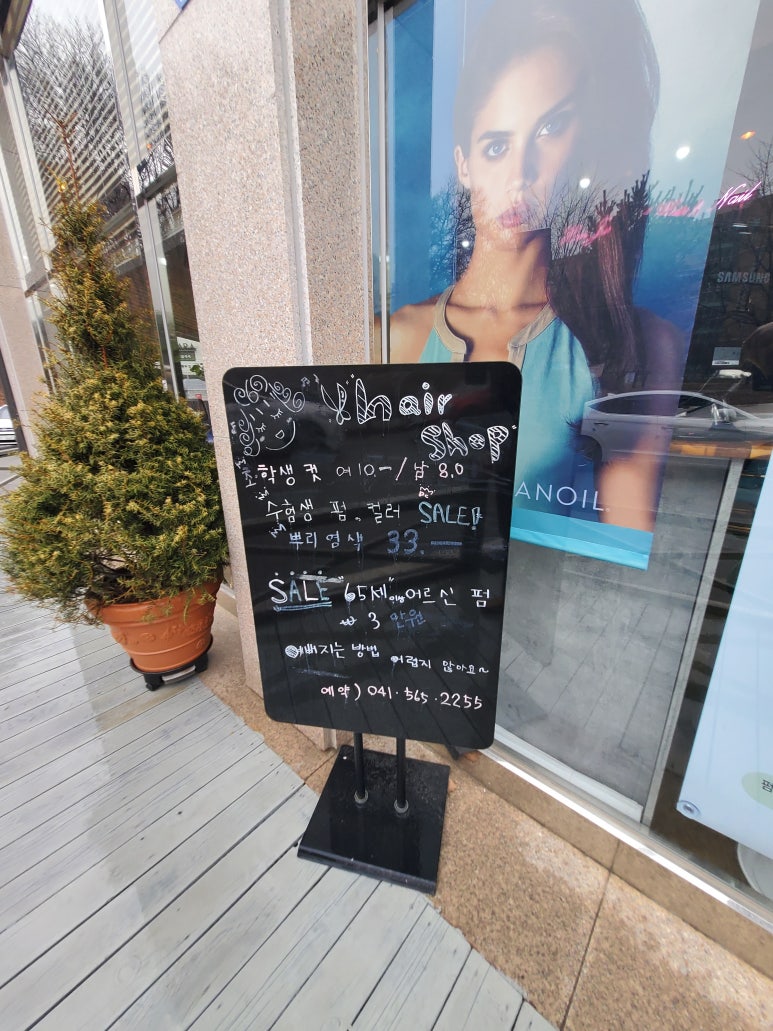 hair
Shop
초,학생 컷 여 10.-/ 남 8.0
수험생 펌, 컬러 SALE!
뿌리염색 33.-
SALE "65세"이상 어르신 펌
₩ 3 만원
예뻐지는 방법 어렵지 않아요~
예약) 041.565.2255
ANOIL.
Nail
SAMSUNG
펌